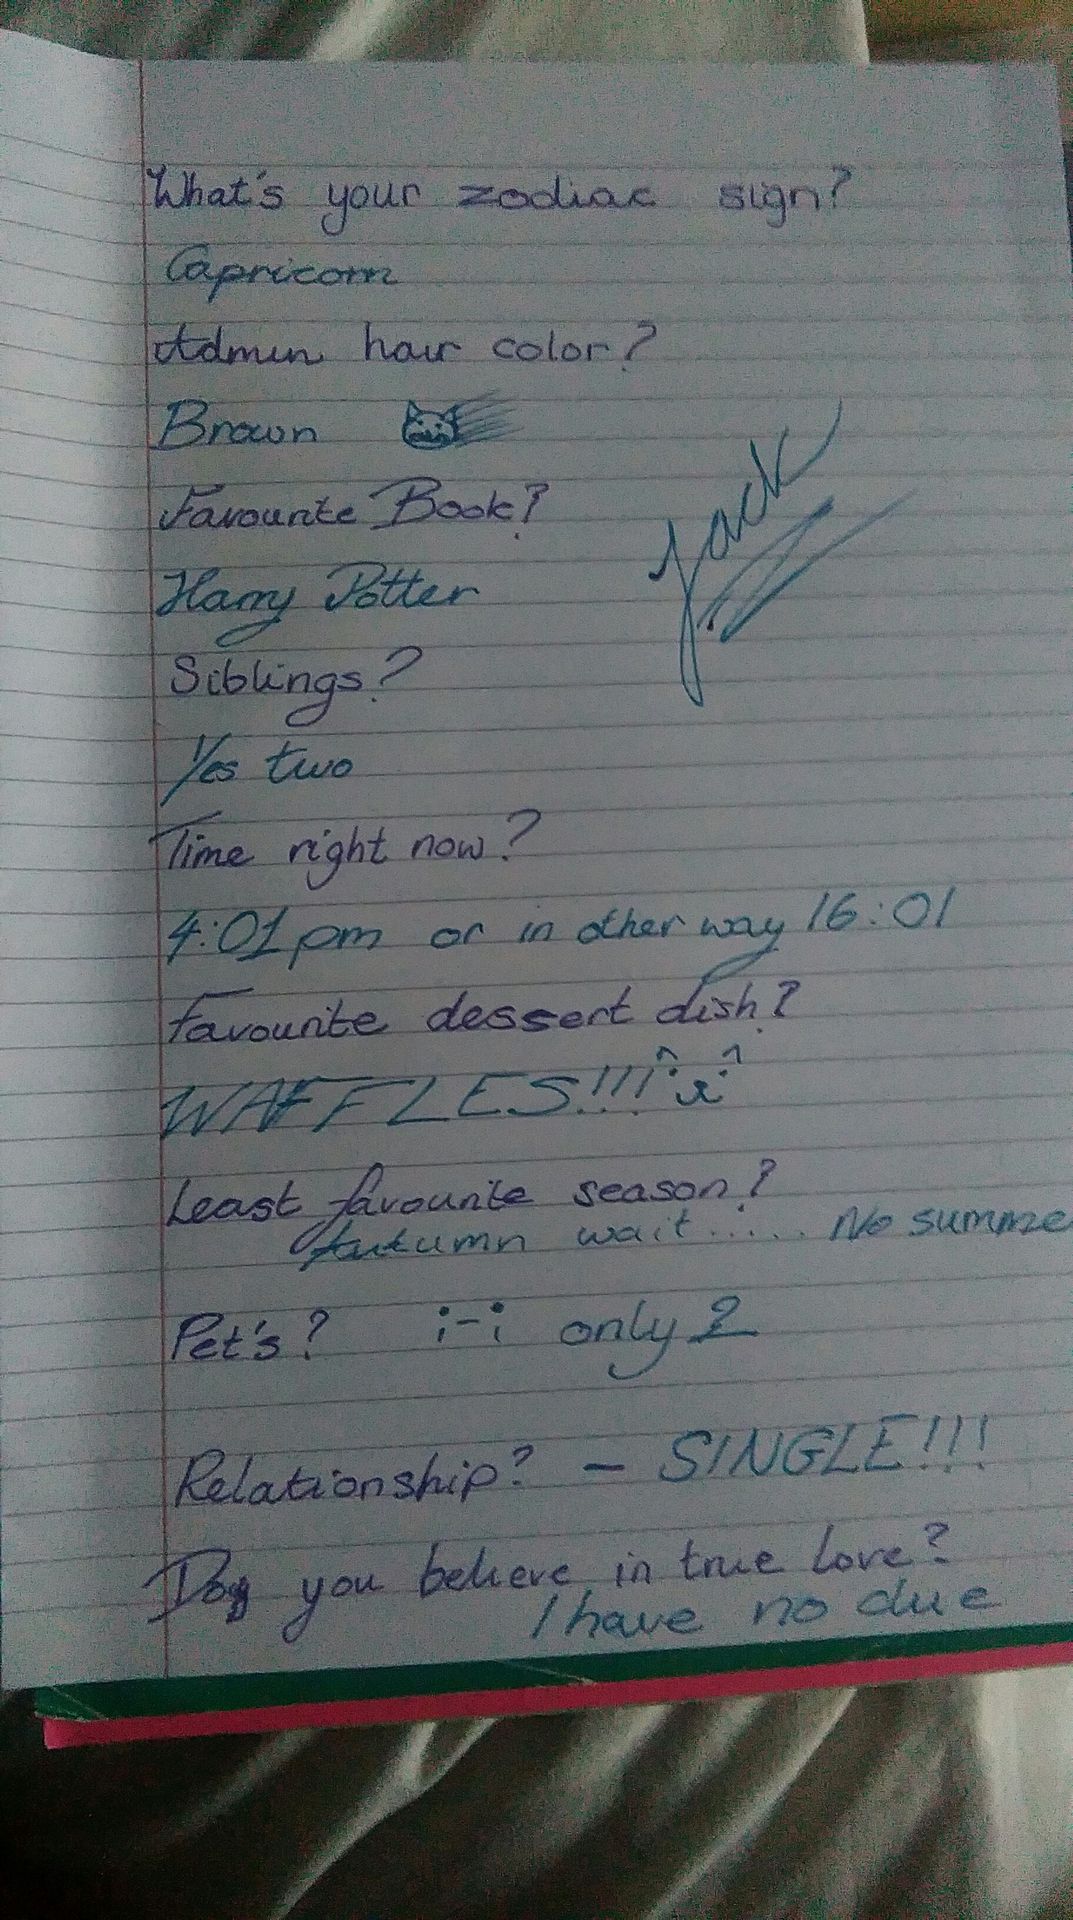 What's your zodiac sign?
Capricorn
Admin hair color?
Brown
Favourite Book?
Harry Potter
Jack
Siblings?
Yes two
Time right now?
4:01 pm or in other way 16:01
Favourite dessert dish?
WAFFLES!!!
Least favourite season?
Autumn wait..... No summe
Pet's? ;-; only 2
Relationship? - SINGLE!!!
Do you believe in true love?
I have no clue